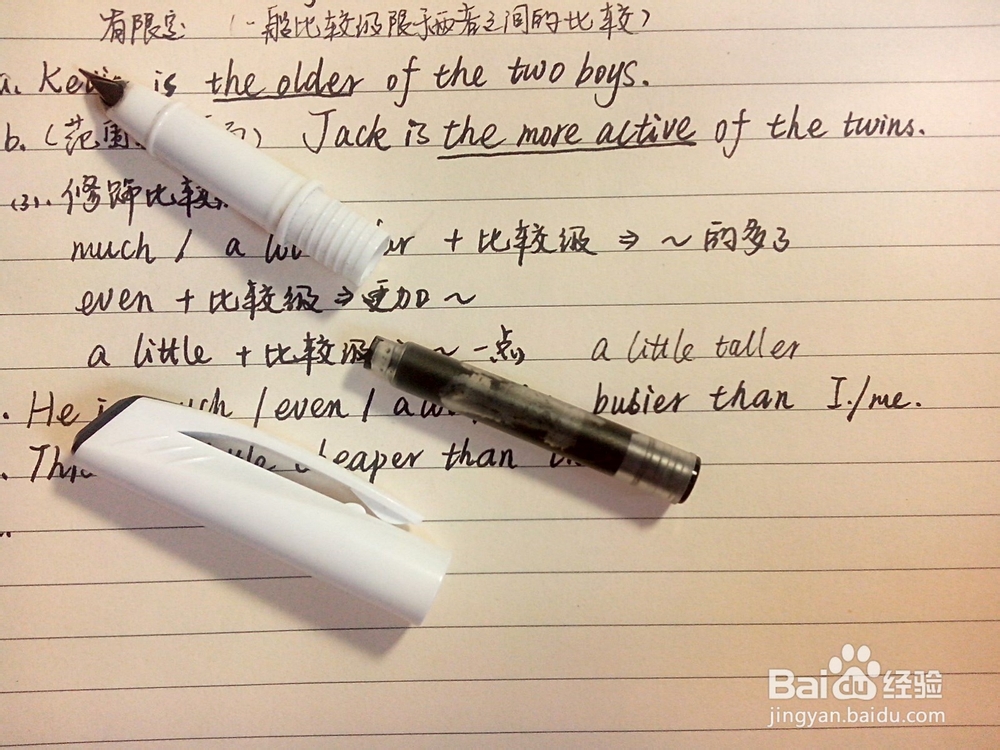 有限定 (一般比较级限于两者之间的比较)
a. Kevin is the older of the two boys.
b. (范围 ) Jack is the more active of the twins.
(3). 修饰比较
much / a + 比较级 ⇒ ~的多了
even + 比较级 ⇒ 更加~
a little + 比较级 ~一点 a little taller
. He is much / even / a busier than I./me.
. cheaper than
Baidu经验
jingyan.baidu.com